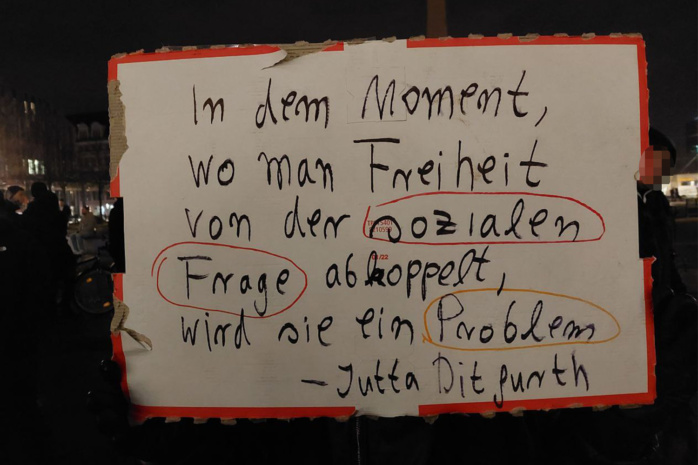 In dem Moment,
wo man Freiheit
von der sozialen
Frage abkoppelt,
wird sie ein Problem
– Jutta Ditfurth